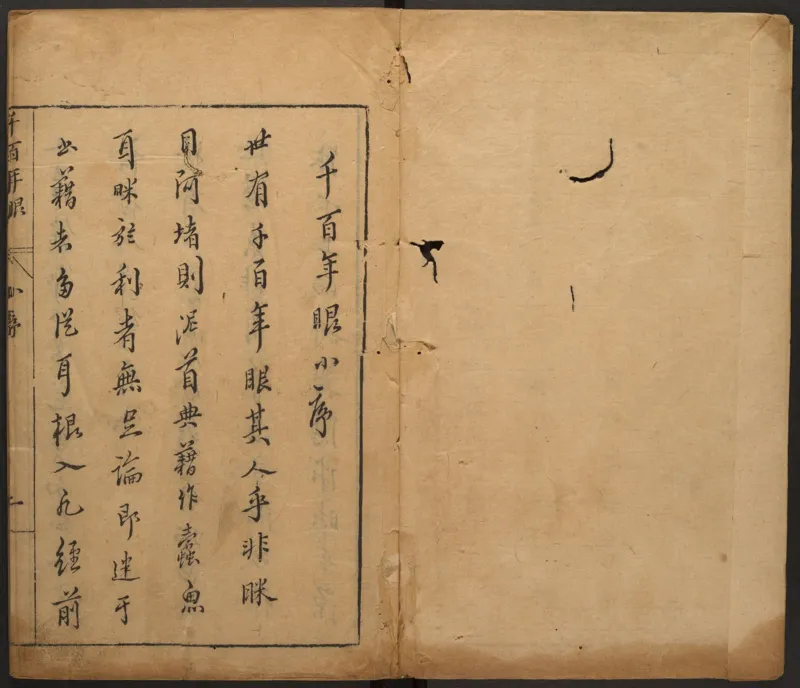 千百年眼小序
世有千百年眼其人乎非眯
目阿堵則泥首典籍作蠹魚
耳眯於利者無足論即迷于
书籍者多從耳根入凡經前
千百年眼
小序
一